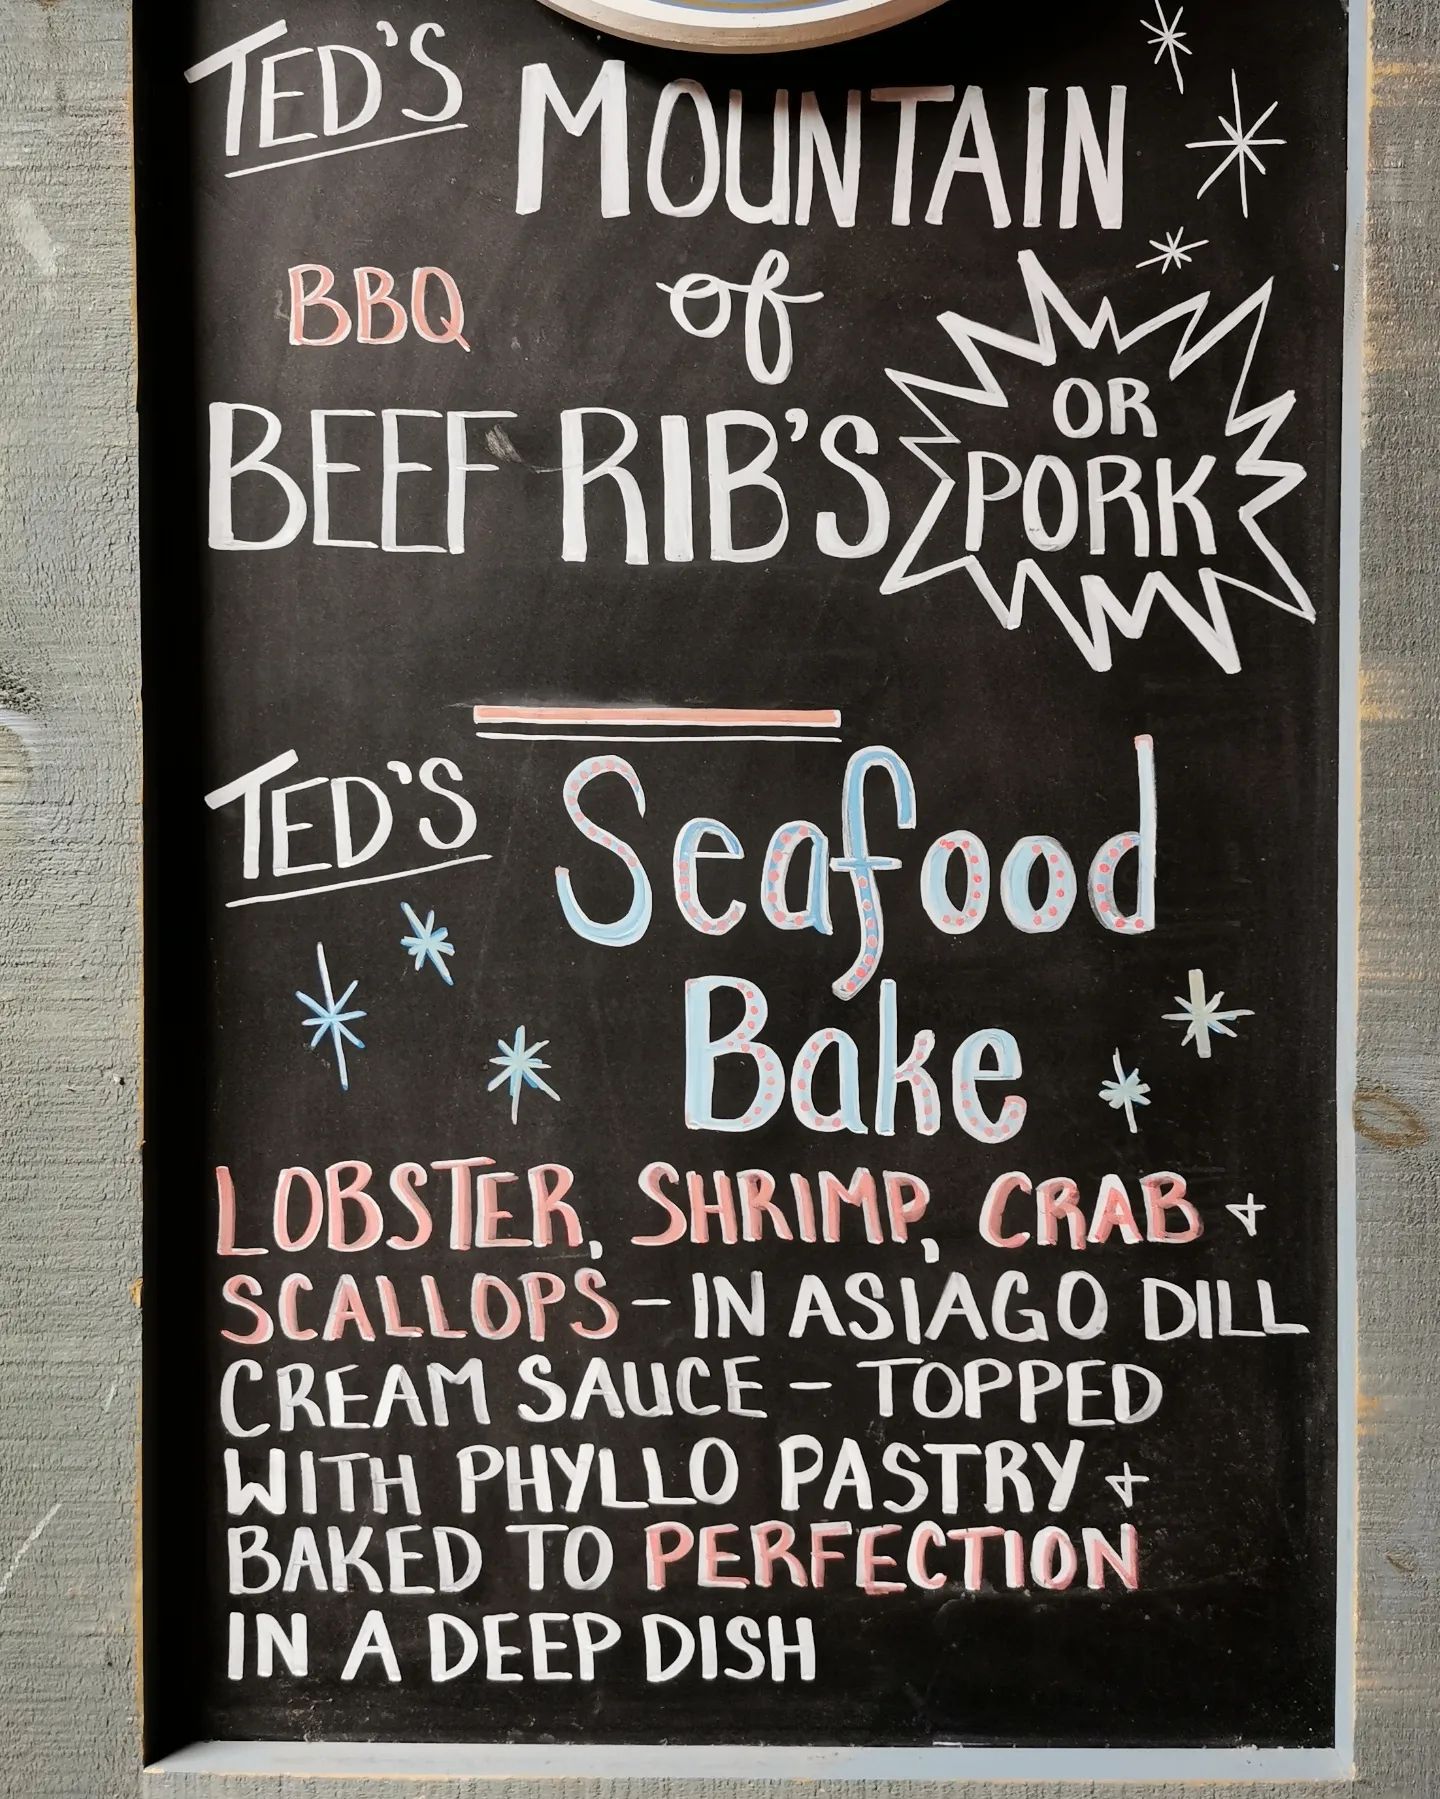 TED'S MOUNTAIN
BBQ of
BEEF RIB'S OR PORK
TED'S Seafood
Bake
LOBSTER, SHRIMP, CRAB +
SCALLOPS – IN ASIAGO DILL
CREAM SAUCE – TOPPED
WITH PHYLLO PASTRY +
BAKED TO PERFECTION
IN A DEEP DISH